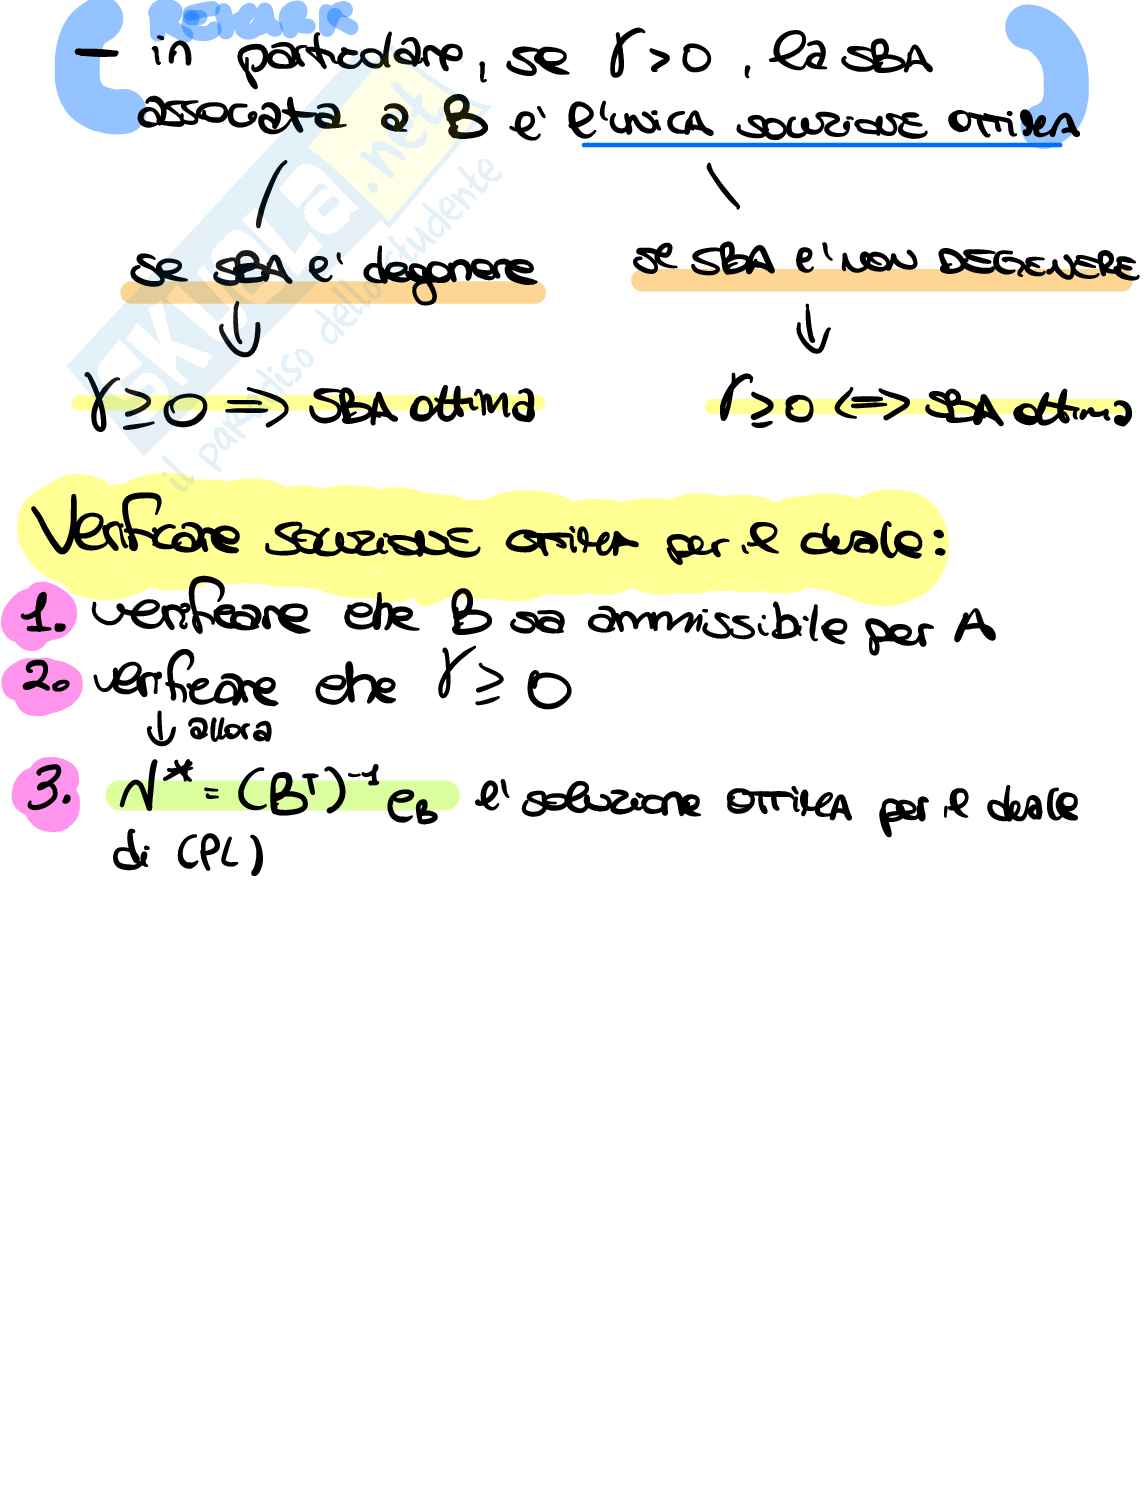 REMARK
- in particolare, se γ > 0, la SBA
associata a B e' l'UNICA SOLUZIONE OTTIMA
se SBA e' degenere
se SBA e' NON DEGENERE
γ ≥ 0 => SBA ottima
γ ≥ 0 <=> SBA ottima
Verificare SOLUZIONE OTTIMA per il duale:
1. verificare che B sia ammissibile per A
2. verificare che γ ≥ 0
↓ allora
3. v* = (Bᵀ)⁻¹ c_B e' soluzione OTTIMA per il duale
di (PL)
SKUOLA.net
il paradiso dello studente